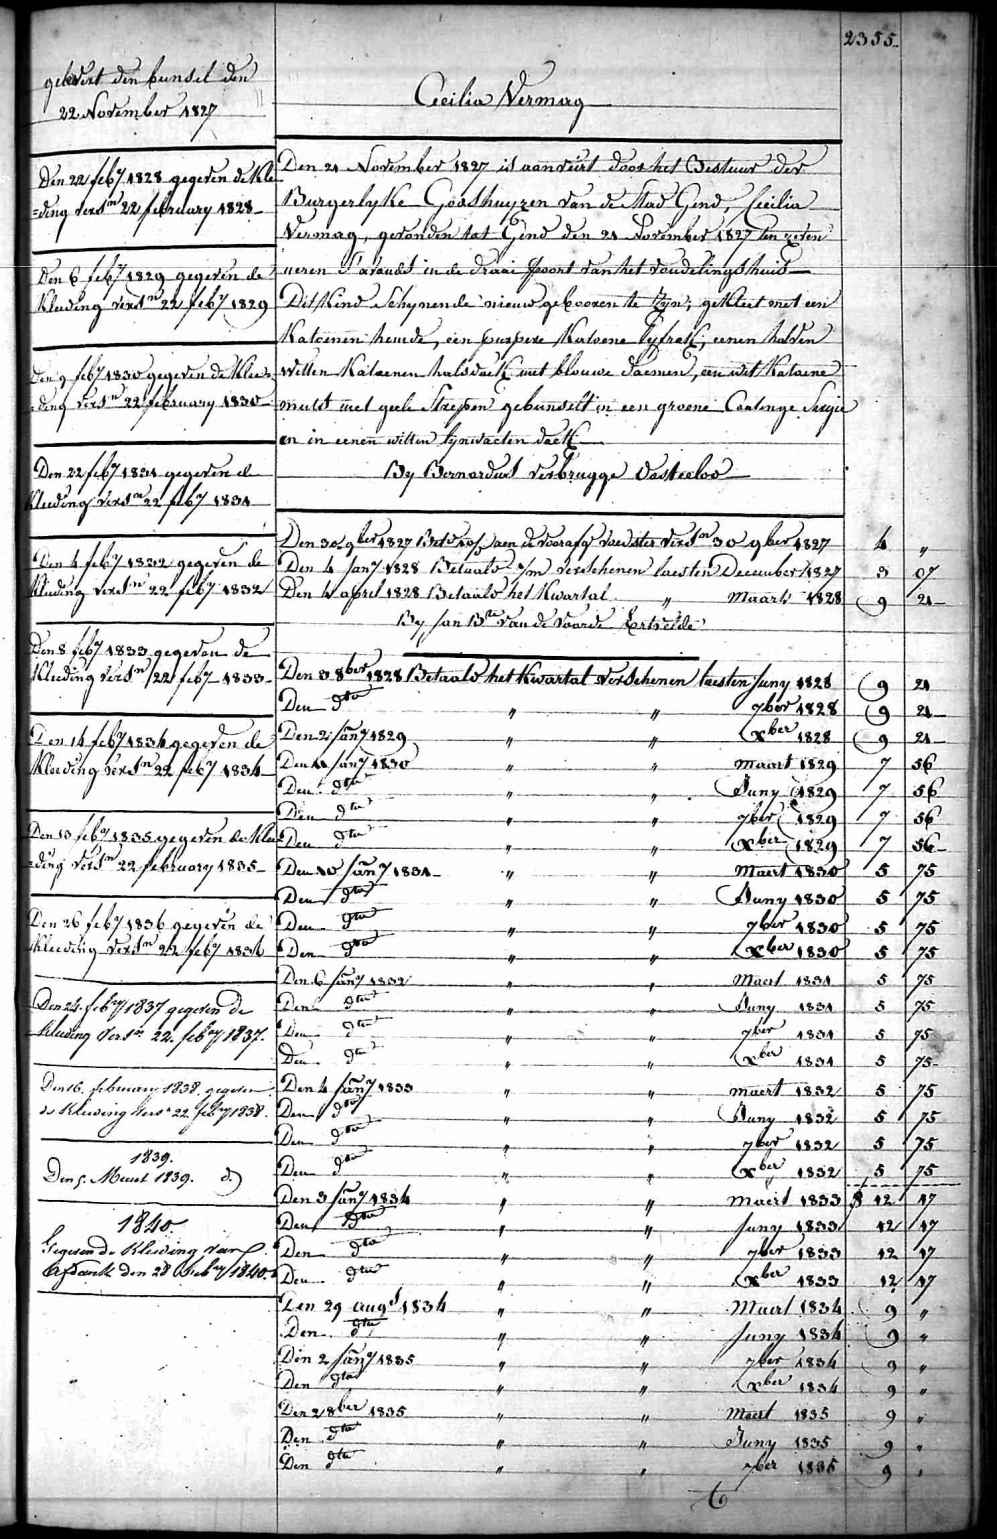 2355.
gelevert den bunsel den
22 November 1827
Cecilia Vermag
Den 22 feb.y 1828 gegeven de Klee
=ding versn 22 february 1828
Den 6 feb.y 1829 gegeven de
Kleeding versn 22 feb.y 1829
Den 9 feb.y 1830 gegeven de Klee=
=ding versn 22 february 1830
Den 22 feb.y 1831 gegeven d
Kleeding versn 22 feb.y 1831
Den 4 feb.y 1832 gegeven de
Kleeding versn 22 feb.y 1832
Den 8 feb.y 1833 gegeven de
Kleeding versn 22 feb.y 1833
Den 14 feb.y 1834 gegeven de
Kleeding versn 22 feb.y 1834
Den 13 feb.y 1835 gegeven de Klee
=ding versn 22 february 1835
Den 26 feb.y 1836 gegeven de
Kleeding versn 22 feb.y 1836
Den 24. feb.y 1837 gegeven de
Kleeding versn 22. feb.y 1837.
Den 16. february 1838 gegeven
de Kleeding versn 22 feb.y 1838.
1839.
Den 5. Meert 1839. d.)
1840.
Gegeven de Kleeding van
den 28 Feb.y 1840.
Den 21 November 1827 is aanveirt door het Bestuur der
Burgerlyke Godshuyzen van de Stad Gend, Cecilia
Vermag, gevonden tot Gend den 21 November 1827 ten zeven
ueren S'avonds in de draai poort van het vondelingshuis
Dit Kind Schynende nieuw gebooren te Zyn, gekleet met een
Katoenen hemde, een purpere Katoene lyfrok, eenen halven
Witten Katoenen halsdoek met blouwe daemen, een wit Katoene
mutst met geele Strepen gebunselt in een groene Sergie
en in eenen witten lynwaeten doek
By Bernardus verbrugge Oosteeloo
Den 30 9ber 1827 Bet. aen de voorafg voedster versn 30 9ber 1827 4 "
Den 4 Jan.y 1828 Betaald verschenen laesten December 1827 3 07
Den 4 april 1828 Betaald het Kwartal " Maart 1828 9 21
By Jan Bte van de Voorde
Den 3 8ber 1828 Betaald het Kwartal verschenen laesten Juny 1828 9 21
Den dto " " 7ber 1828 9 21
Den 2 Jan.y 1829 " " Xber 1828 9 21
Den 4 Jan.y 1830 " " Maart 1829 7 56
Den dto " " Juny 1829 7 56
Den dto " " 7ber 1829 7 56
Den dto " " Xber 1829 7 56
Den 10 Jan.y 1831 " " Maert 1830 5 75
Den dto " " Juny 1830 5 75
Den dto " " 7ber 1830 5 75
Den dto " " Xber 1830 5 75
Den 6 Jan.y 1832 " " Maert 1831 5 75
Den dto " " Juny 1831 5 75
Den dto " " 7ber 1831 5 75
Den dto " " Xber 1831 5 75
Den 4 Jan.y 1833 " " Maert 1832 5 75
Den dto " " Juny 1832 5 75
Den dto " " 7ber 1832 5 75
Den dto " " Xber 1832 5 75
Den 3 Jan.y 1834 " " Maert 1833 12 17
Den dto " " Juny 1833 12 17
Den dto " " 7ber 1833 12 17
Den dto " " Xber 1833 12 17
Den 29 augt 1834 " " Maert 1834 9 "
Den dto " " Juny 1834 9 "
Den 2 Jan.y 1835 " " 7ber 1834 9 "
Den dto " " Xber 1834 9 "
Den 2 8ber 1835 " " Maert 1835 9 "
Den dto " " Juny 1835 9 "
Den dto " " 7ber 1835 9 "